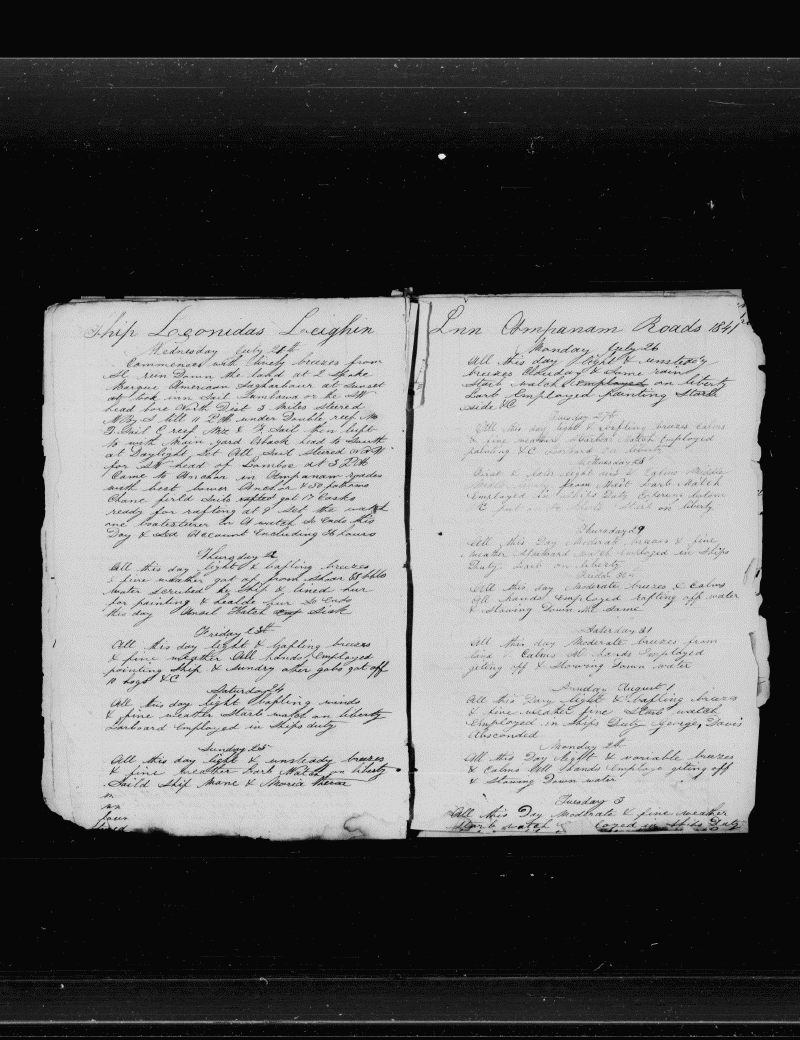 Ship Leonidas Leighin
Wednesday July 21th
Commences with breezes from
run Down the land at 2 Spoke
Barque American Sagharbour at Sunset
at took inn Sail the SW
head bore North Dist 3 Miles Steered
N by till 11 P M under Double reef
Sail reef & Sail then luft
to with Main yard Aback head to South
at Daylight Set All Sail Steered
for SW head of Lomboc at 3 P M
Came to Anchor in Ampanam roades
with best bower Anchor & 50 fathoms
Chane Sails rafted got 17 Casks
ready for rafting at 8 Set the watch
one boatsteerer to A watch So Ends this
Day & Sea Account Including 36 hours
Thursday 22
All this day light & bafling breezes
& fine weather got off from Shoar 88 bbls
water Scrubed the Ship & lined her
for painting & healde her So Ends
this day Hatch Sick
Friday 23th
All this day light & bafling breezes
& fine weather All hands Employed
painting Ship & Sundry other gobs got off
10 hogs &C
Saturday 24
All this day light bafling winds
& fine weather Starb watch on liberty
Larboard Employed in Ships duty
Sunday 25
All this day light & unsteady breezes
& fine weather Larb Watch on liberty
Saild Ship Mane & Maria
Inn Ampanam Roads 1841
Monday July 26
All this day light & unsteady
breezes Clouday & Some rain
Starb watch Employed on liberty
Larb Employed painting Starb
side &C
Tuesday 27th
All this day light & bafling breezes Calms
& fine weather Watch Employed
painting &C Larboard on liberty
Wednesday 28
First & later light airs & Calms Middle
from West Larb Watch
Employed in Ships Duty
Starb on liberty
Thursday 29
All this Day Moderate breezes & fine
weather Starboard watch employed in Ships
Duty Larb on liberty
Friday 30th
All this day Moderate breezes & Calms
All hands Employed rafting off water
& Stowing Down the Same
Saterday 31
All this day Moderate breezes from
land & Calms All hands Employed
geting off & Stowing Down water
Sunday August 1
All this Day light & bafling breezes
& fine weather fine Starb watch
Employed in Ships Duty George Davis
Absconded
Monday 2th
All this Day light & variable breezes
& Calms All Hands Employe geting off
& Stowing Down water
Tuesday 3
All this Day Moderate & fine weather
Starb watch in Ships Duty